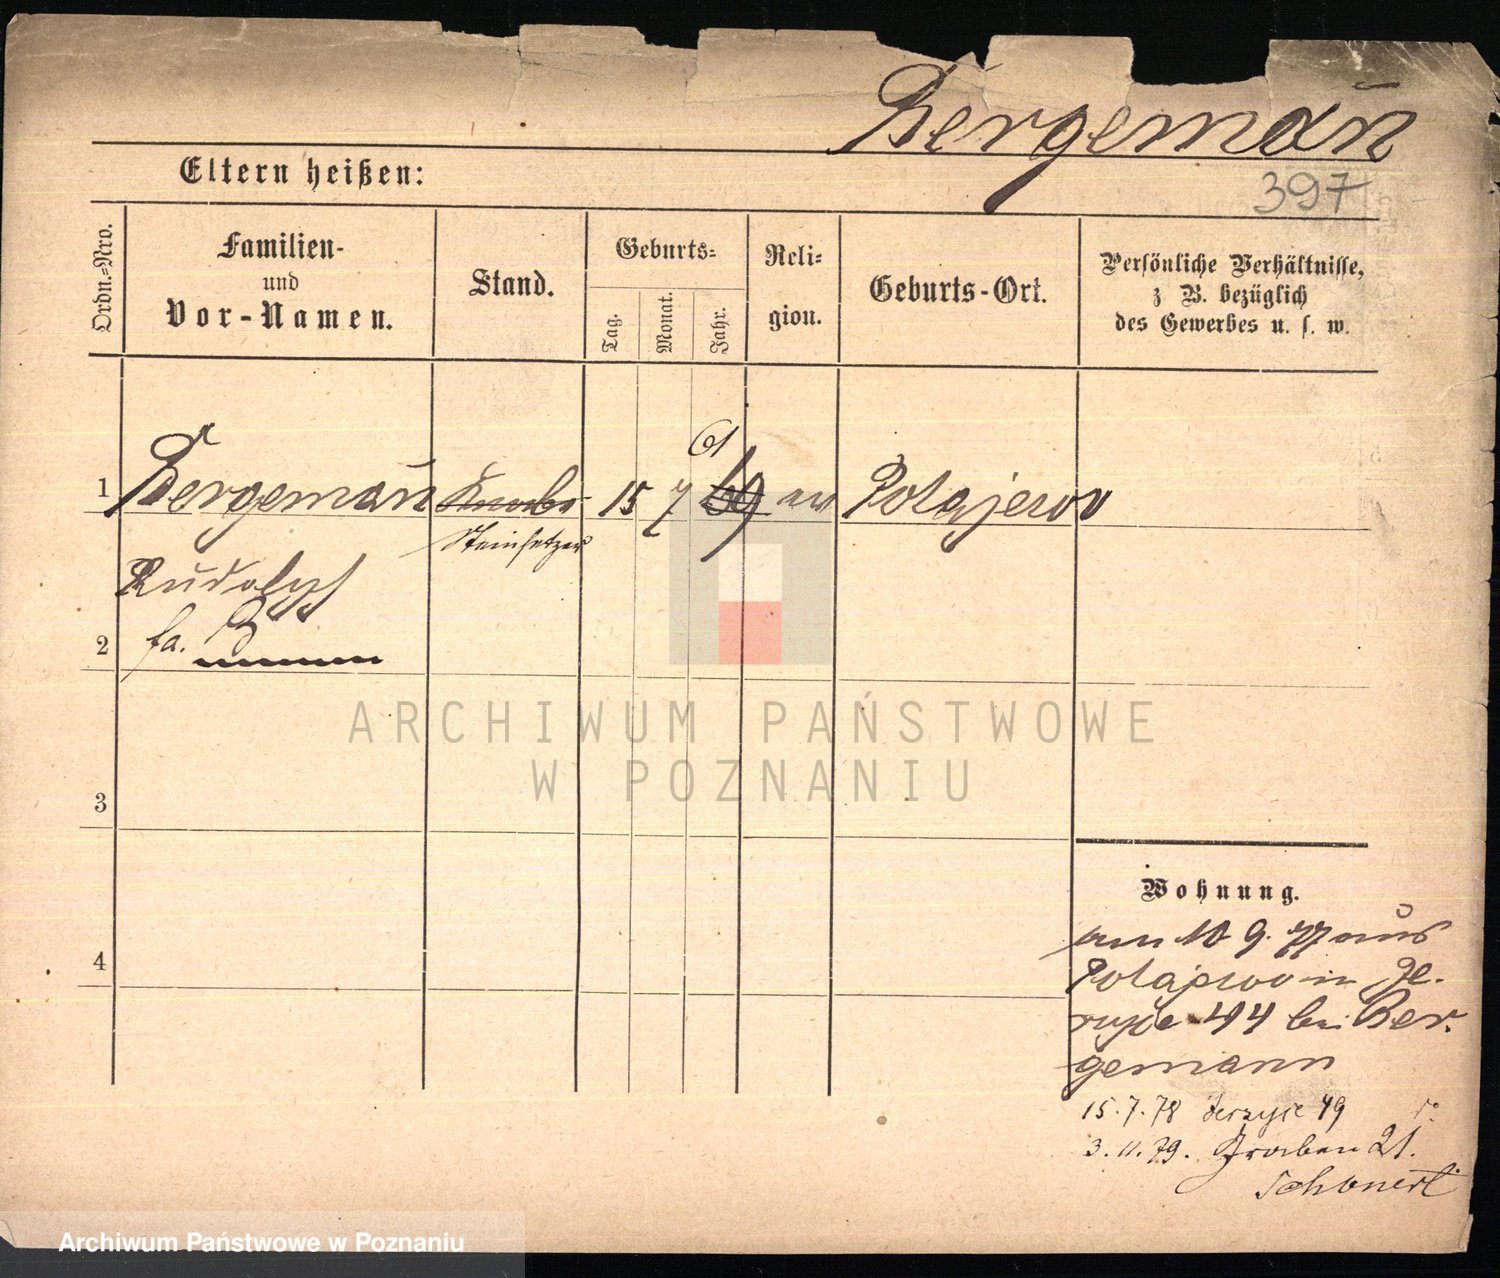 Bergeman̄
397
Eltern heißen:
Ordn.=Nro.
Familien-
und
Vor-Namen.
Stand.
Geburts=
Tag.
Monat.
Jahr.
Reli=
gion.
Geburts-Ort.
Persönliche Verhältnisse,
z B. bezüglich
des Gewerbes u. s. w.
61
1 Bergeman̄ Knabe 15 7 69 ev Polajewo
Steinsetzer
Rudolph
2 fa. B
3
4
Wohnung.
am 10 9. 77 aus
Polajewo in Je-
rzyce 44 bei Ber-
gemann
15.7.78 Jerzyce 49
3.11.79. Graben 21.
Schonert
ARCHIWUM PAŃSTWOWE
W POZNANIU
Archiwum Państwowe w Poznaniu